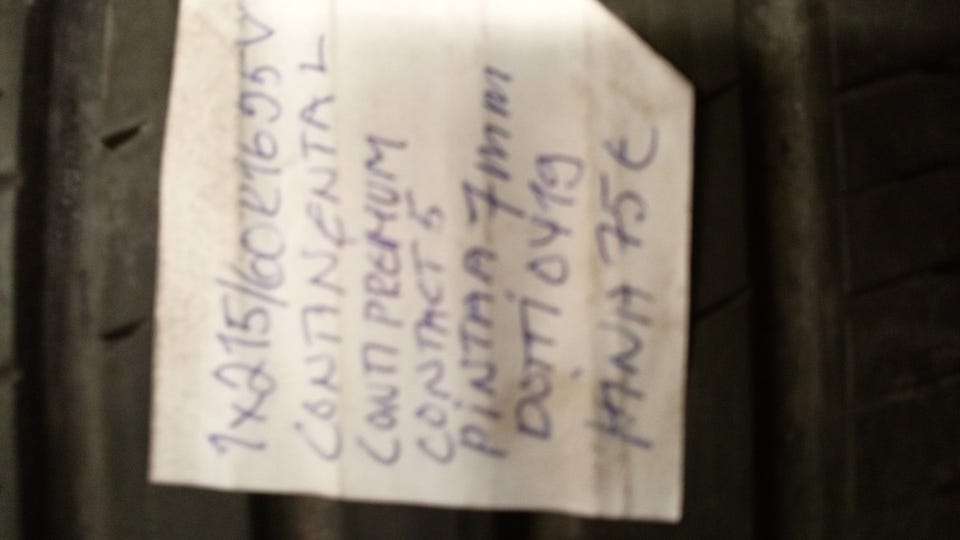 1x215/60R1695V
CONTINENTAL
CONTI PREMUM
CONTACT 5
PINTAA 7mm
DOTTI 0419
HINA 75€